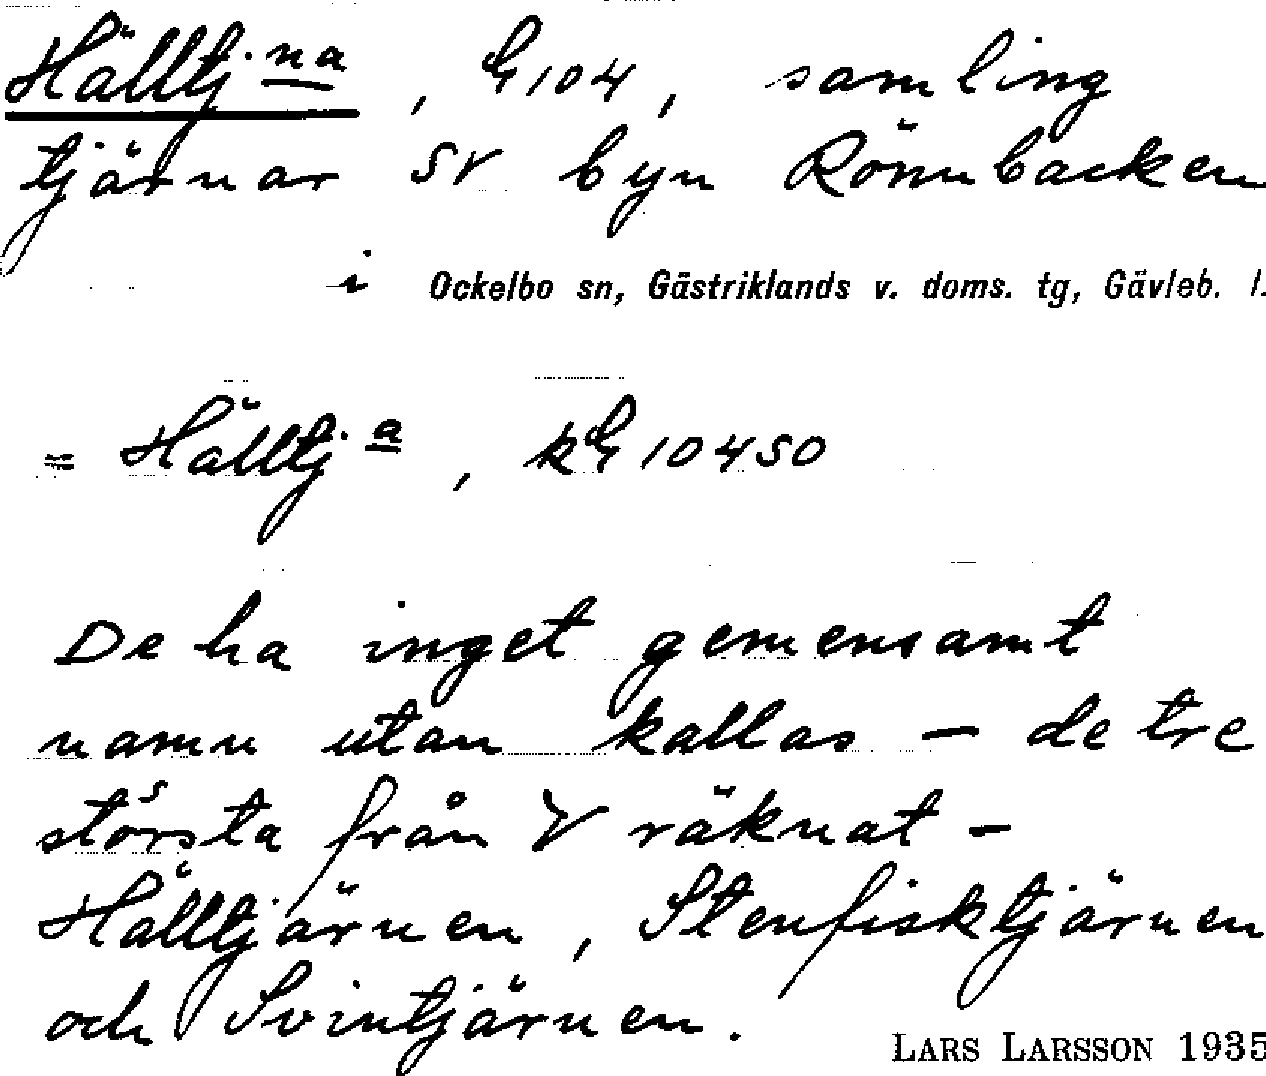 Hälltj:na, G104, samling
tjärnar SV byn Rönnbacken
i Ockelbo sn, Gästriklands v. doms. tg, Gävleb. l.
= Hälltj:a, kG10450
De ha inget gemensamt
namn utan kallas - de tre
största från V räknat -
Hälltjärnen, Stenfisktjärnen
och Svintjärnen.
LARS LARSSON 1935